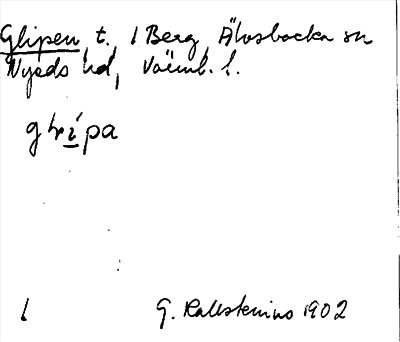 Glipen, t. 1 Berg, Älvsbacka sn
Nyeds hd, Värml. l.
glí̱pa
1 G. Kallstenius 1902